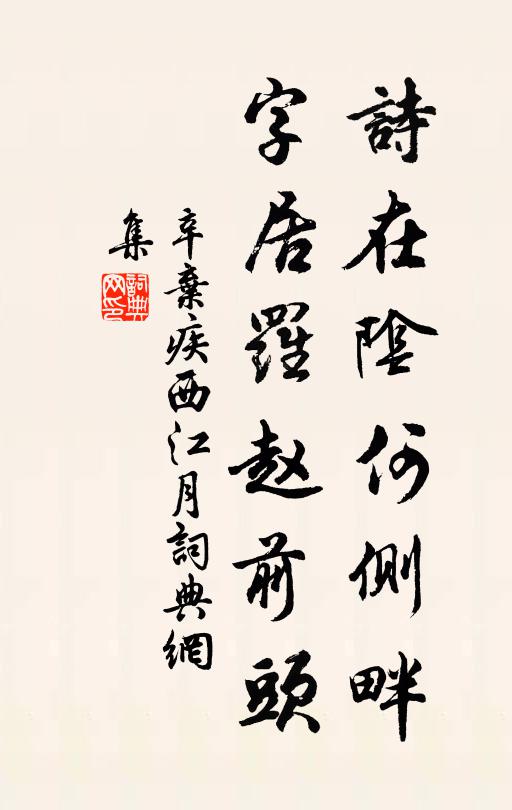 詩在陰何側畔
字居羅赵前頭
辛棄疾西江月詞典網
集
詞典
网印